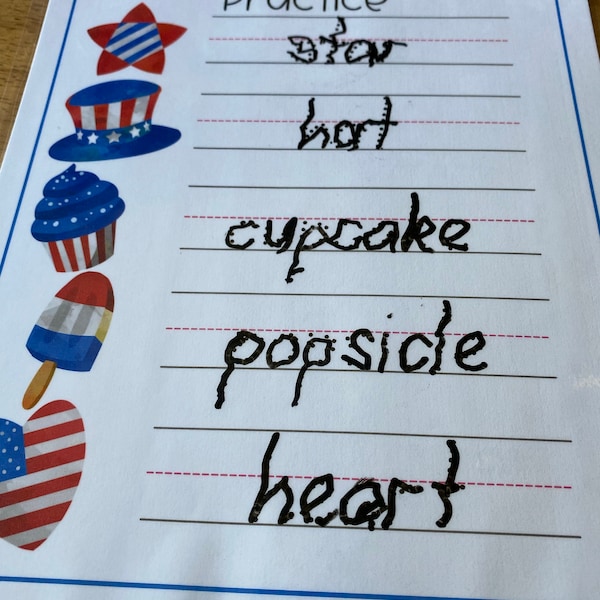 Practice
star
hat
cupcake
popsicle
heart